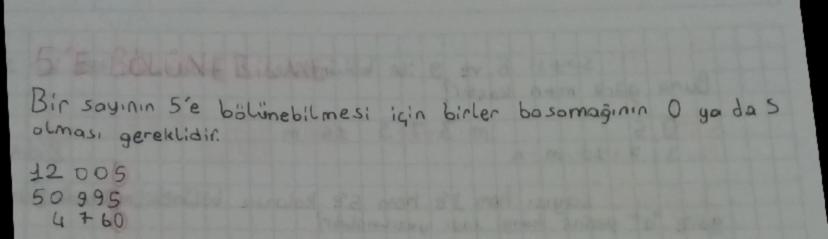 5'E BÖLÜNEBİLME
Bir sayının 5'e bölünebilmesi için birler basamağının 0 ya da 5
olması gereklidir.
12 005
50 995
4 760